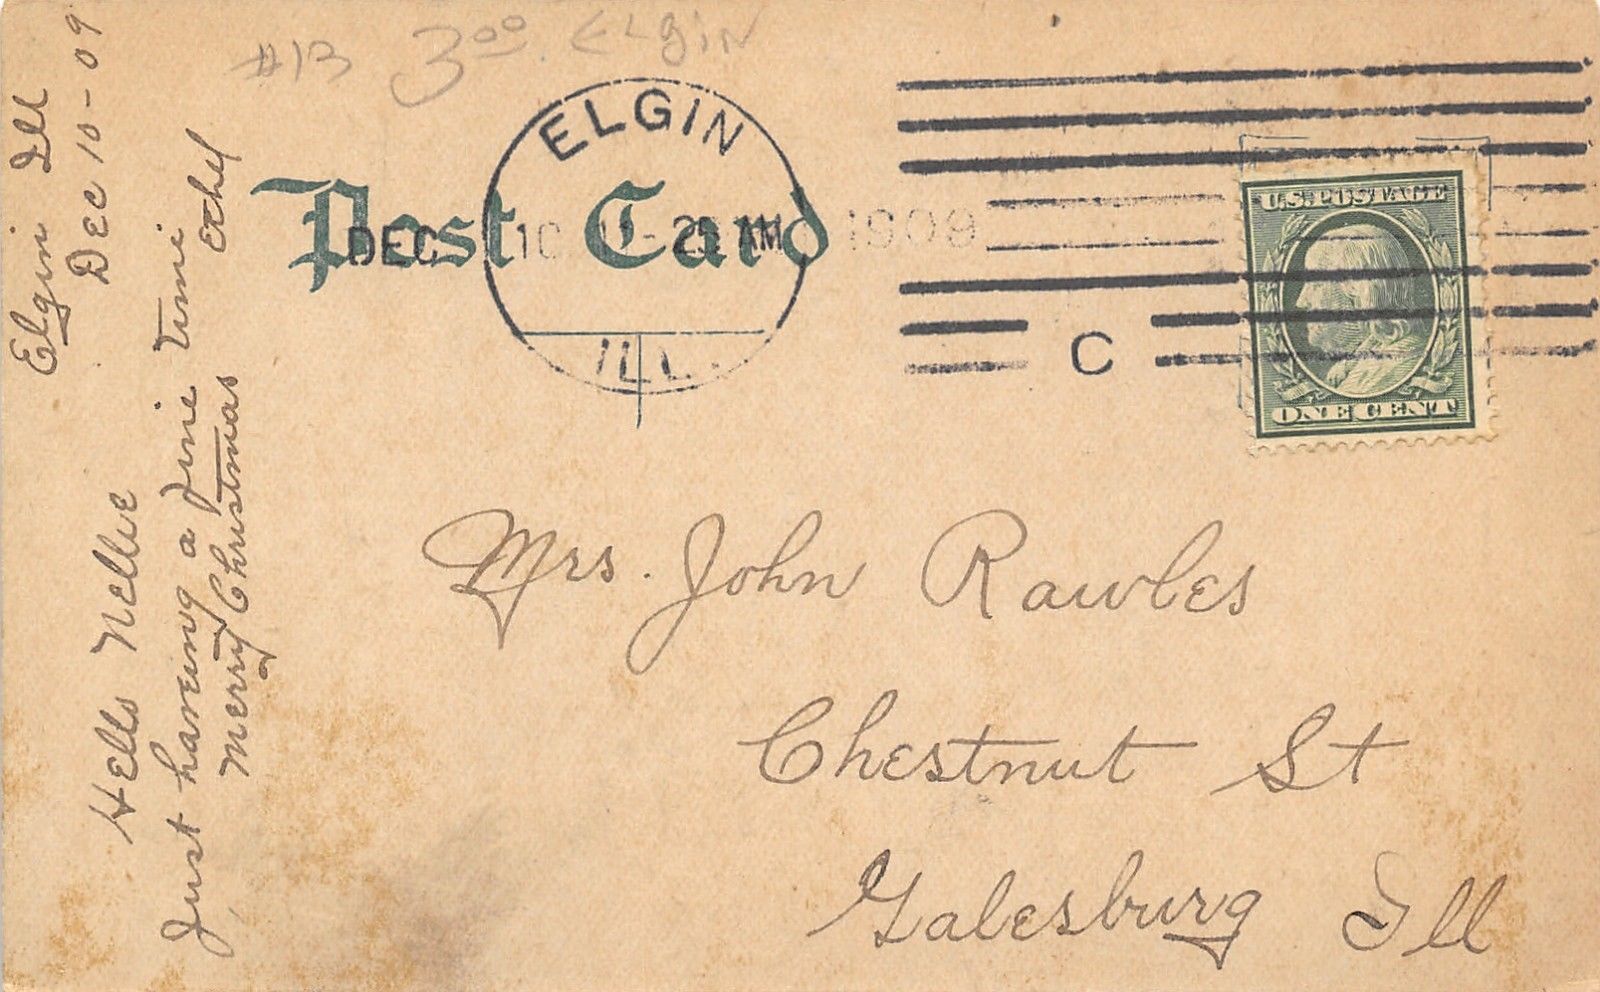 #13 3.00 ELgiN
ELGIN
Post Card
DEC 10 11- AM 1909
ILL.
C
U.S. POSTAGE
ONE CENT
Elgin Ill
Dec 10-09
Hello Nellie
Just haveing a fine time
Merry Christmas Ethel
Mrs. John Rawles
Chestnut St
Galesburg Ill